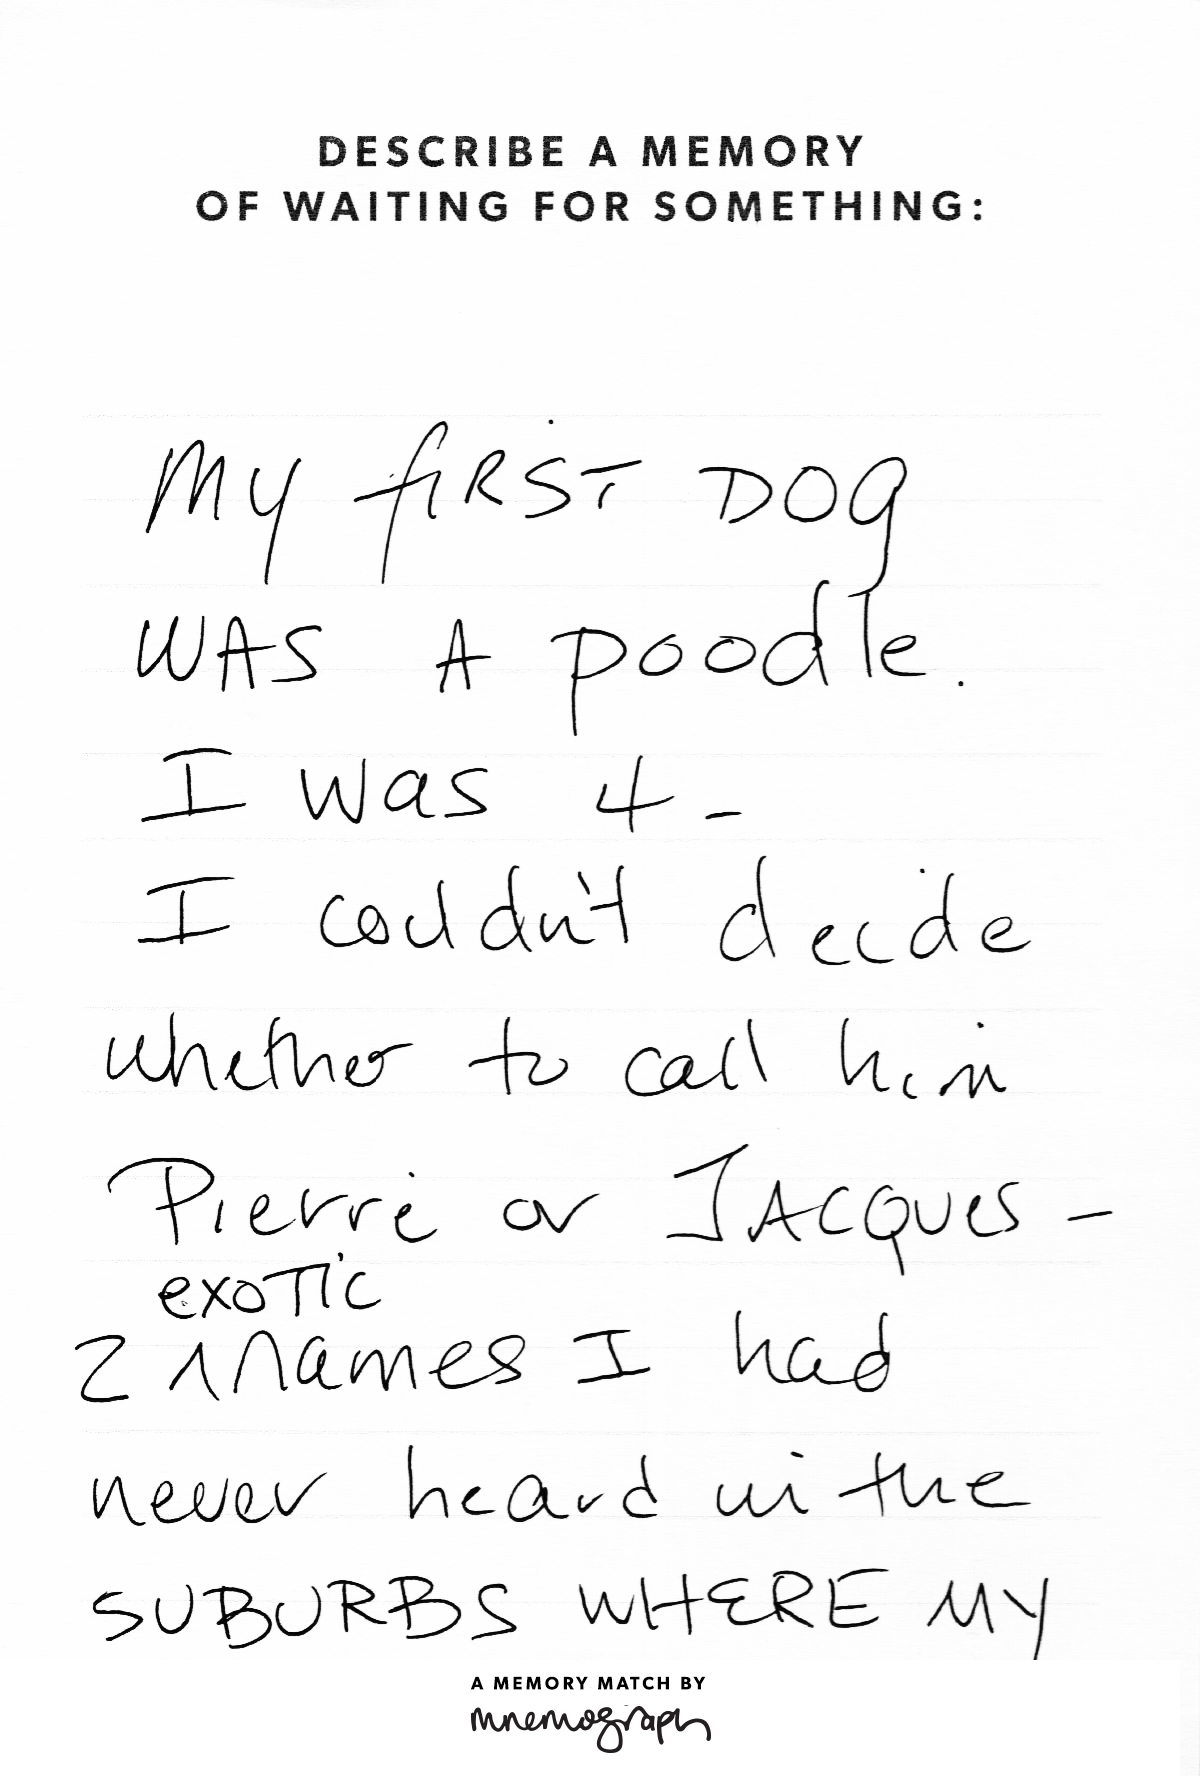 DESCRIBE A MEMORY
OF WAITING FOR SOMETHING:
My fiRST DOg
WAS A poodle.
I was 4 –
I couldn't decide
whether to call him
Pierre or JACQUES –
exoTic
2 ^ names I had
never heard in the
SUBURBS WHERE MY
A MEMORY MATCH BY
mnemograph